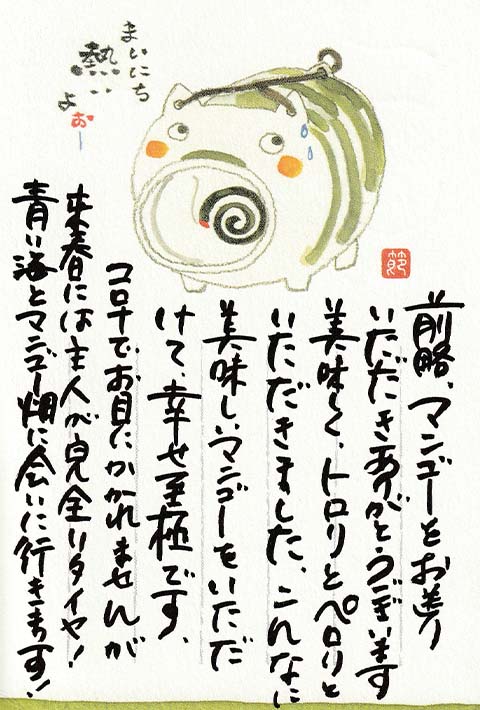 まいにち
熱いよぉー
前略、マンゴーとお送り
いただきありがとうございます
美味しく、トロリとペロリと
いただきました、こんなに
美味しいマンゴーをいただ
けて、幸せ至極です、
コロナでお目にかかれませんが
来春には主人が完全リタイヤ!
青い海とマンゴー畑に会いに行きます!